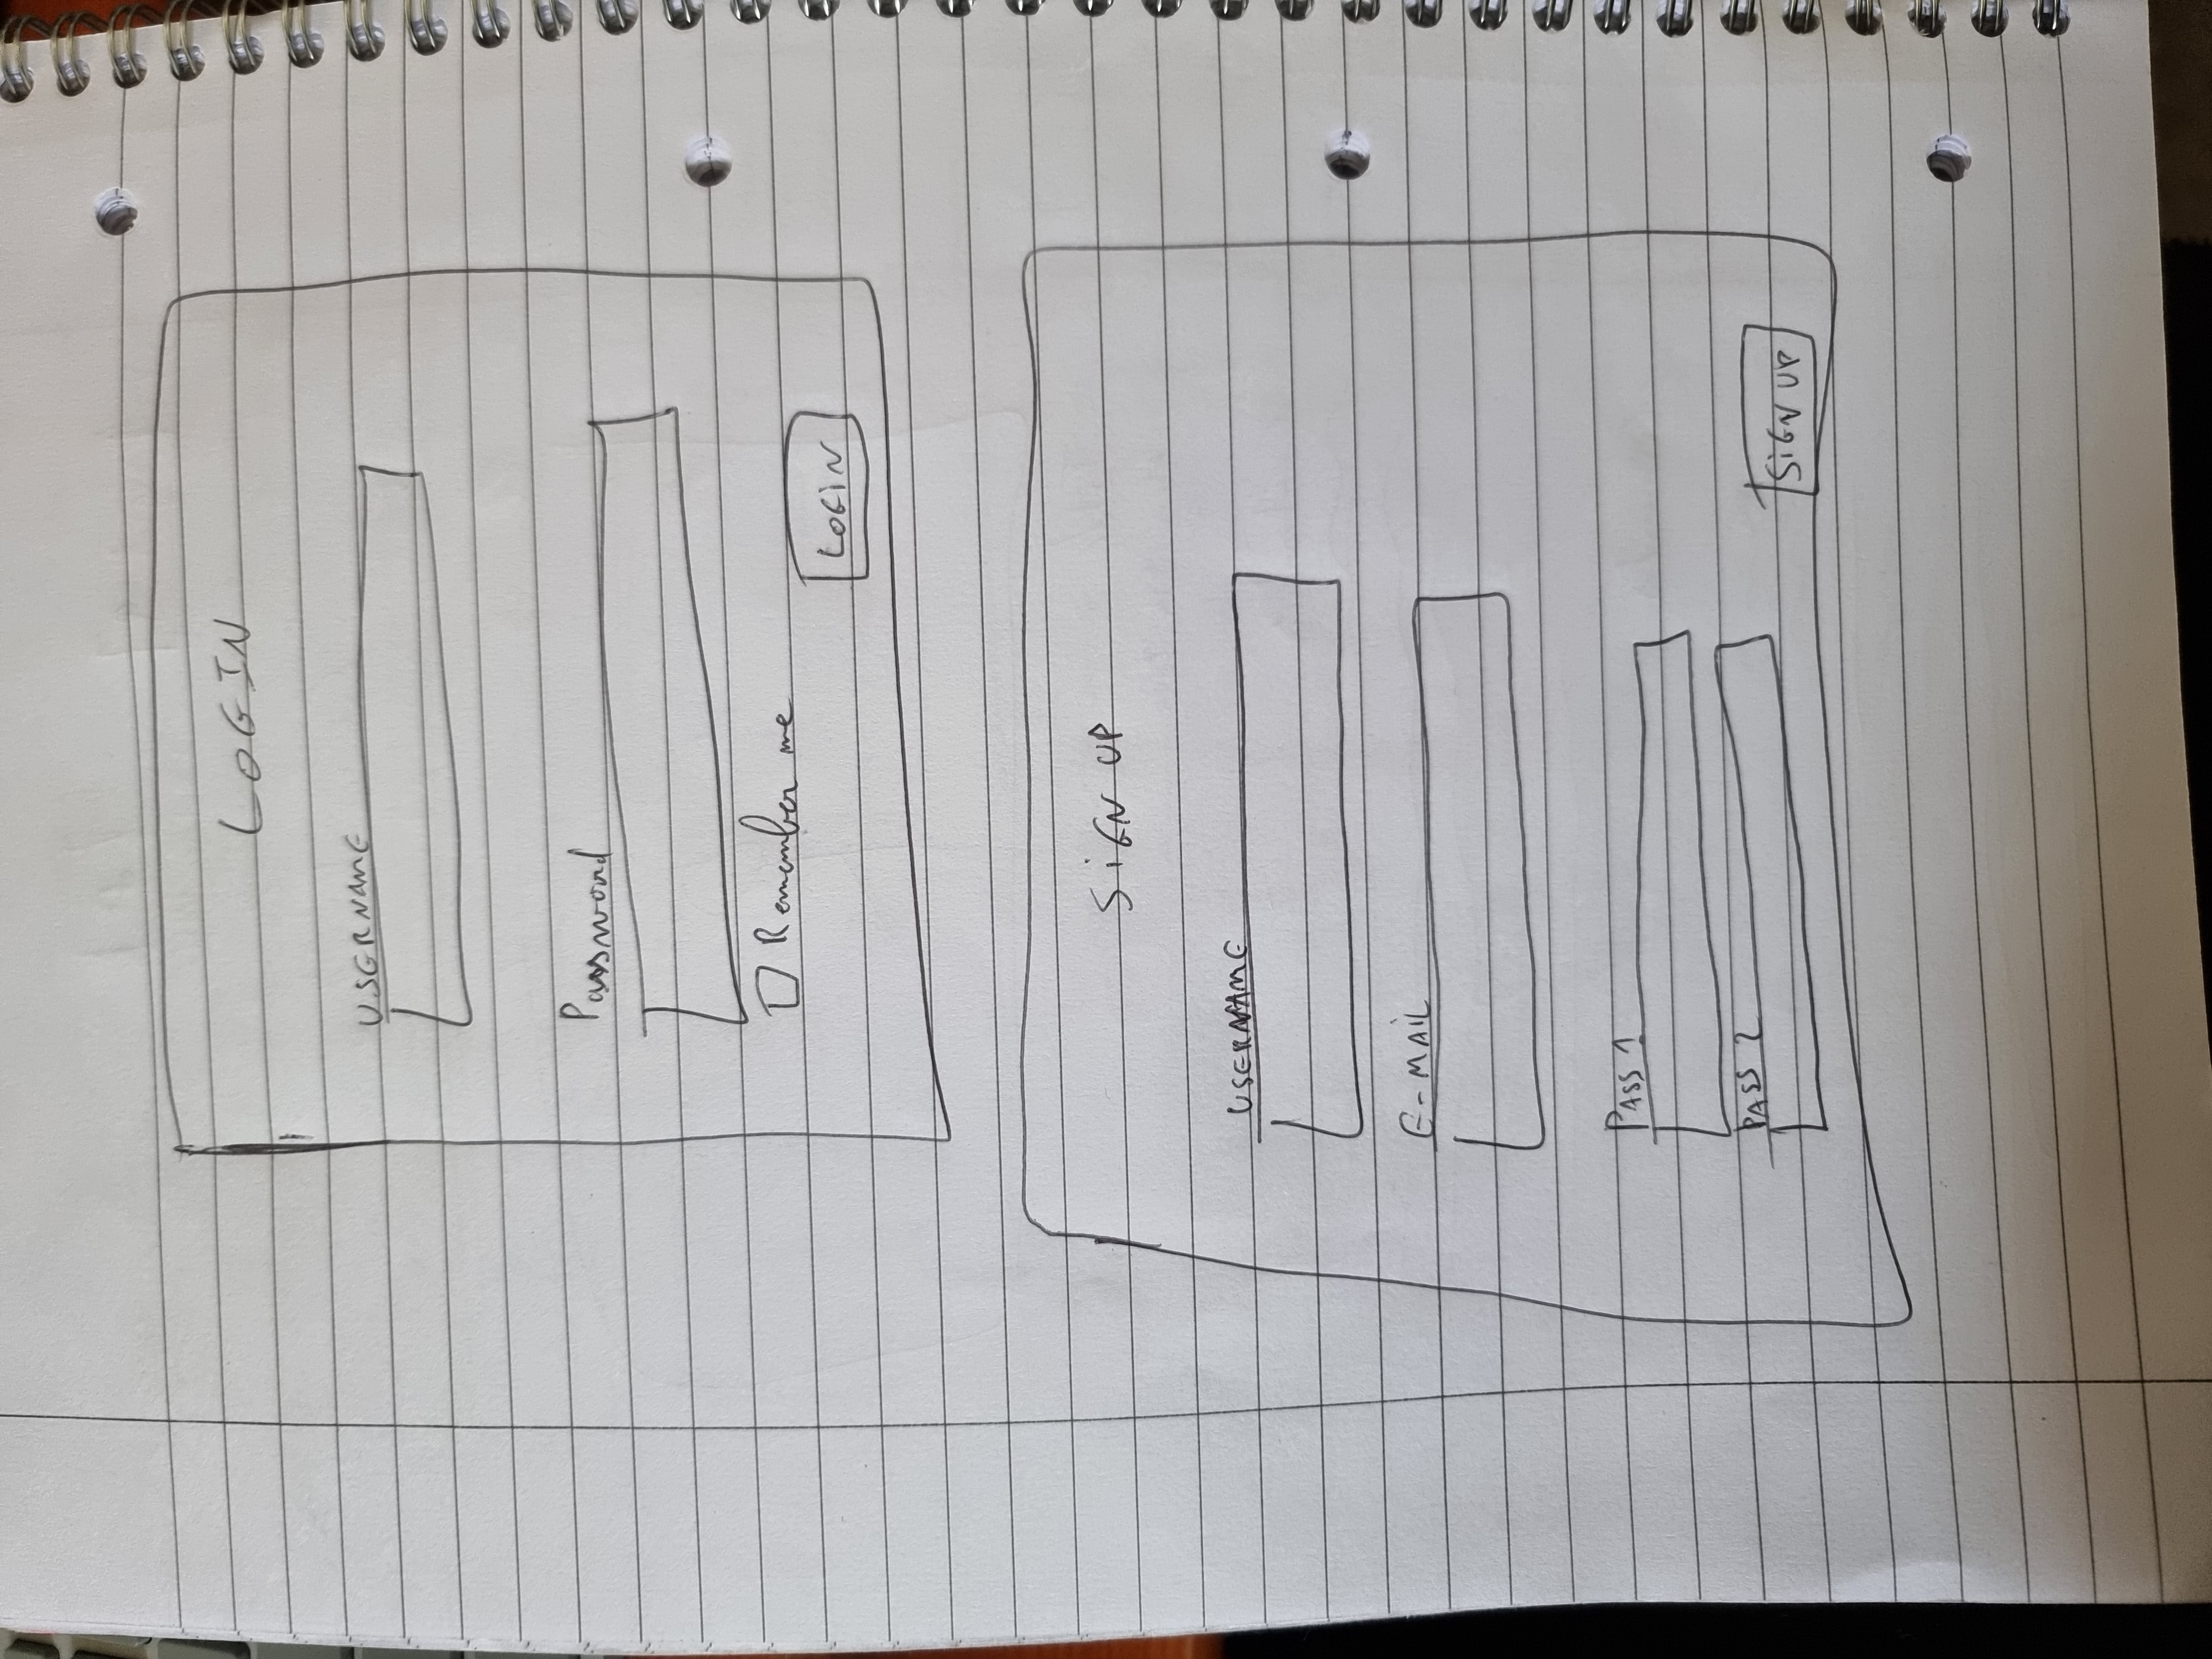 LOGIN
USERNAME
Password
Remember me
LOGIN
SIGN UP
USERNAME
E-MAIL
PASS 1
PASS 2
SIGN UP